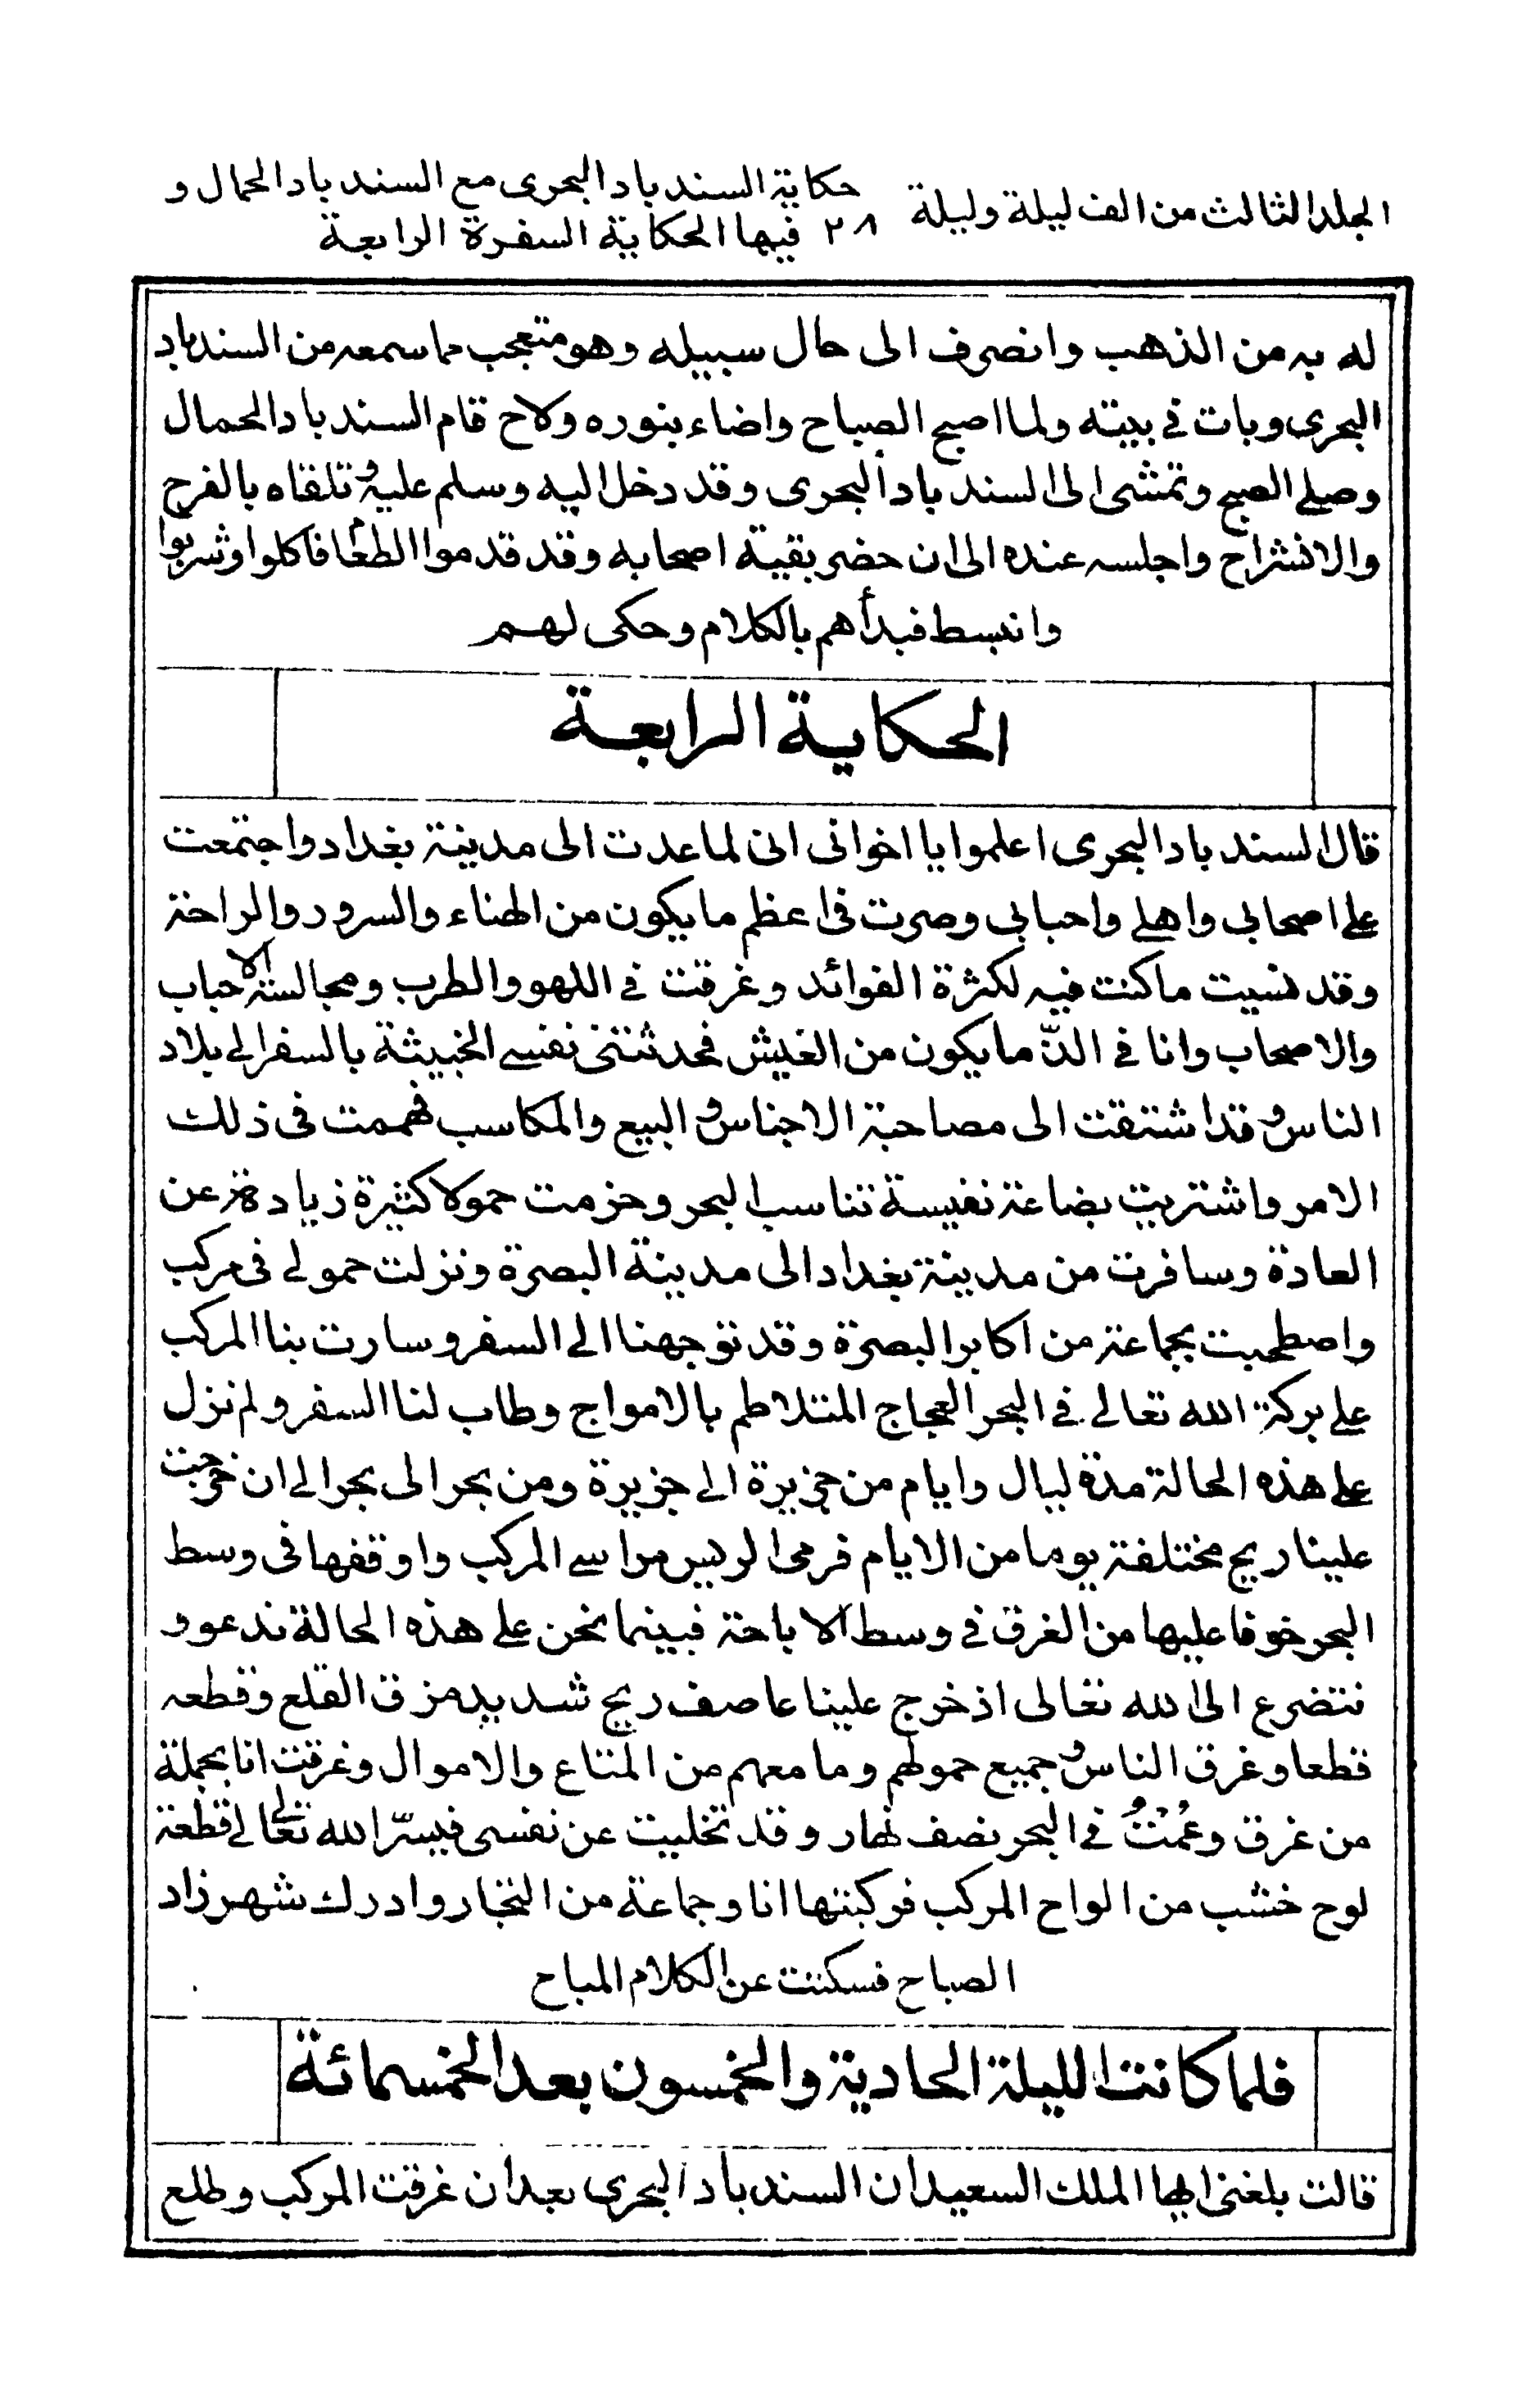 الجلد الثالث من الف ليلة وليلة
٢٨
حكاية السندباد البحرى مع السندباد الحمال و
فيها الحكاية السفرة الرابعة
له به من الذهب وانصرف الى حال سبيله وهو متعجب مما سمعه من السندباد
البحرى وبات في بيته ولما اصبح الصباح واضاء بنوره ولاح قام السندباد الحمال
وصلى الصبح وتمشى الى السندباد البحرى وقد دخل اليه وسلم عليه وتلقاه بالفرح
والانشراح واجلسه عنده الى ان حضر بقية اصحابه وقد قدموا الطعام فاكلوا وشربوا
وانبسط فبدأهم بالكلام وحكى لهم
الحكاية الرابعة
قال السندباد البحرى اعلموا يا اخوانى انى لما عدت الى مدينة بغداد واجتمعت
على اصحابى واهلى واحبابى وصرت فى اعظم ما يكون من الهناء والسرور والراحة
وقد نسيت ما كنت فيه لكثرة الفوائد وغرقت في اللهو والطرب ومجالسة الاحباب
والاصحاب وانا في الذّ ما يكون من العيش فحدثتنى نفسى الخبيثة بالسفر الى بلاد
الناس وقد اشتقت الى مصاحبة الاجناس والبيع والمكاسب فهممت فى ذلك
الامر واشتريت بضاعة نفيسة تناسب البحر وحزمت حمولا كثيرة زيادة عن
العادة وسافرت من مدينة بغداد الى مدينة البصرة ونزلت حمولى فى مركب
واصطحبت بجماعة من اكابر البصرة وقد توجهنا الى السفر وسارت بنا المركب
على بركة الله تعالى في البحر العجاج المتلاطم بالامواج وطاب لنا السفر ولم نزل
على هذه الحالة مدة ليال وايام من جزيرة الى جزيرة ومن بحر الى بحر الى ان خرجت
علينا ريح مختلفة يوما من الايام فرمى الريس مراسى المركب واوقفها فى وسط
البحر خوفا عليها من الغرق في وسط الاباحة فبينما نحن على هذه الحالة ندعو و
نتضرع الى الله تعالى اذ خرج علينا عاصف ريح شديد مزق القلع وقطعه
قطعا وغرق الناس وجميع حمولهم وما معهم من المتاع والاموال وغرقت انا بجملة
من غرق وعُمْتُ في البحر نصف نهار وقد تخليت عن نفسى فيسّر الله تعالى لى قطعة
لوح خشب من الواح المركب فركبتها انا وجماعة من التجار وادرك شهرزاد
الصباح فسكتت عن الكلام المباح
فلما كانت الليلة الحادية والخمسون بعد الخمسمائة
قالت بلغنى ايها الملك السعيد ان السندباد البحرى بعد ان غرقت المركب وطلع